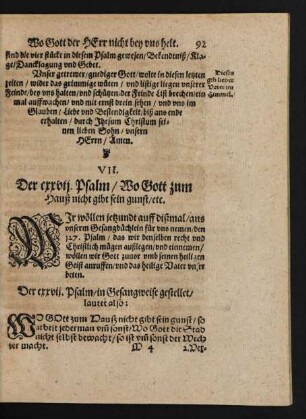 Wo Gott der HErr nicht bey vns helt. 92
sind die vier stück in diesem Psalm gewesen/ Bekendtniß/ Kla-
ge/ Dancksagung vnd Gebet.
Vnser getrewer/ gnediger Gott/ wolte in diesen letzten
zeiten/ wider das grimmige wüten/ vnd listige liegen vnserer
Feinde/ bey vns halten/ vnd schützen/ der Feinde List brechen/ ein-
mal auffwachen/ vnd mit ernst drein sehen/ vnd vns im
Glauben/ Liebe vnd Bestendigkeit biß ans ende
erhalten/ durch Jhesum Christum sei-
nen lieben Sohn/ vnsern
HErrn/ Amen.
VII.
Der cxxvij. Psalm/ Wo Gott zum
Hauß nicht gibt sein gunst/ etc.
WJr wöllen jetzundt auff dißmal/ aus
vnserm Gesangbüchlein für vns nemen/ den
127. Psalm/ das wir denselben recht vnd
Christlich mügen außlegen/ vnd einnemen/
wöllen wir Gott zuuor vmb seinen heiligen
Geist anruffen/ vnd das heilige Vater vnser
beten.
Der cxxvij. Psalm/ in Gesangweise gestellet/
lautet also:
WO GOtt zum Hauß nicht gibt sein gunst/ so
arbeit jederman vmb sonst/ Wo Gott die Stad
nicht selbst bewacht/ so ist vmb sonst der Wech
ter macht.
M 4 2. Ver-